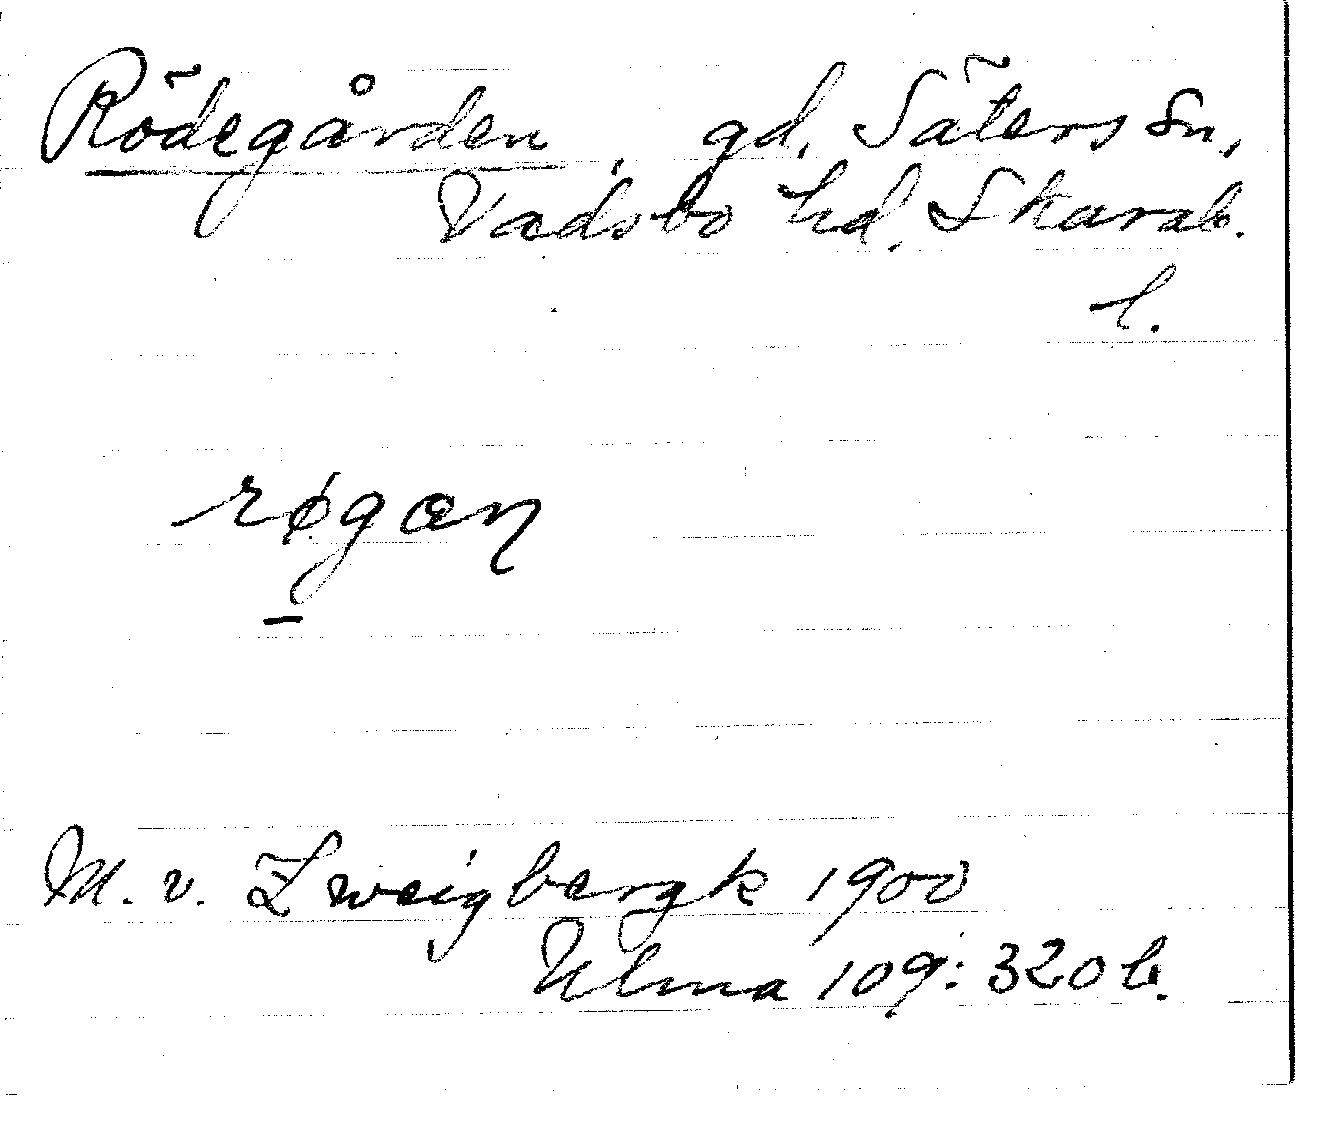 Rödegården, gd, Säters sn,
Vadsbo hd, Skarab.
l.
røgan
M. v. Zweigbergk 1900
Ulma 109: 320 b.